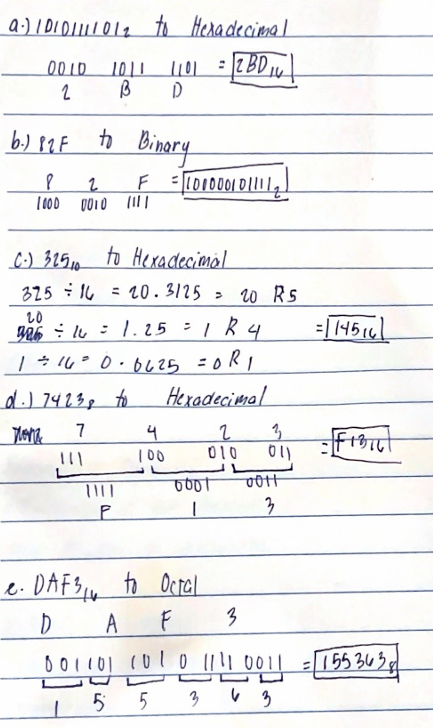 a.) 1010111101₂ to Hexadecimal
0010 1011 1101 = 2BD₁₆
2 B D
b.) 82F to Binary
8 2 F = 100000101111₂
1000 0010 1111
c.) 325₁₀ to Hexadecimal
325 ÷ 16 = 20.3125 = 20 R5
20 ÷ 16 = 1.25 = 1 R 4 = 145₁₆
1 ÷ 16 = 0.0625 = 0 R1
d.) 7423₈ to Hexadecimal
7 4 2 3
111 100 010 011 = F13₁₆
1111 0001 0011
F 1 3
e. DAF3₁₆ to Octal
D A F 3
001 101 101 0 1111 0011 = 155363₈
1 5 5 3 6 3